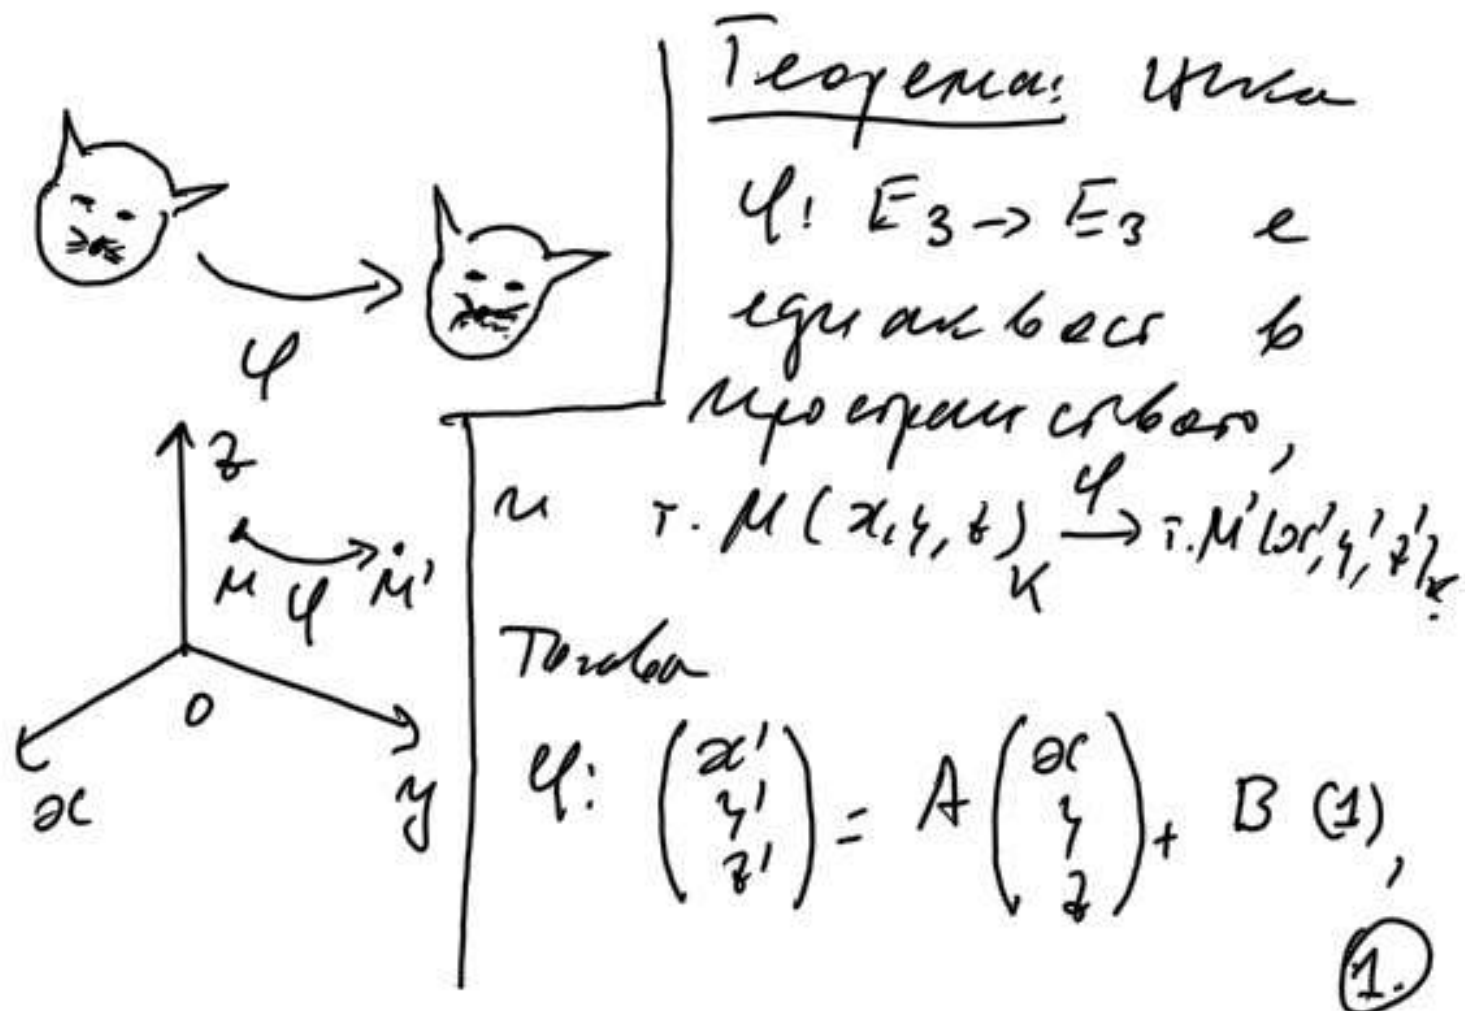 Теорема: Нека
φ: E₃ → E₃ е
еднаквост в
пространството,
и т. M(x, y, z)_K —φ→ т. M'(x', y', z')_K.
Тогава
φ: (x' y' z') = A (x y z) + B (1),
1.
φ
z
M φ M'
O
x y